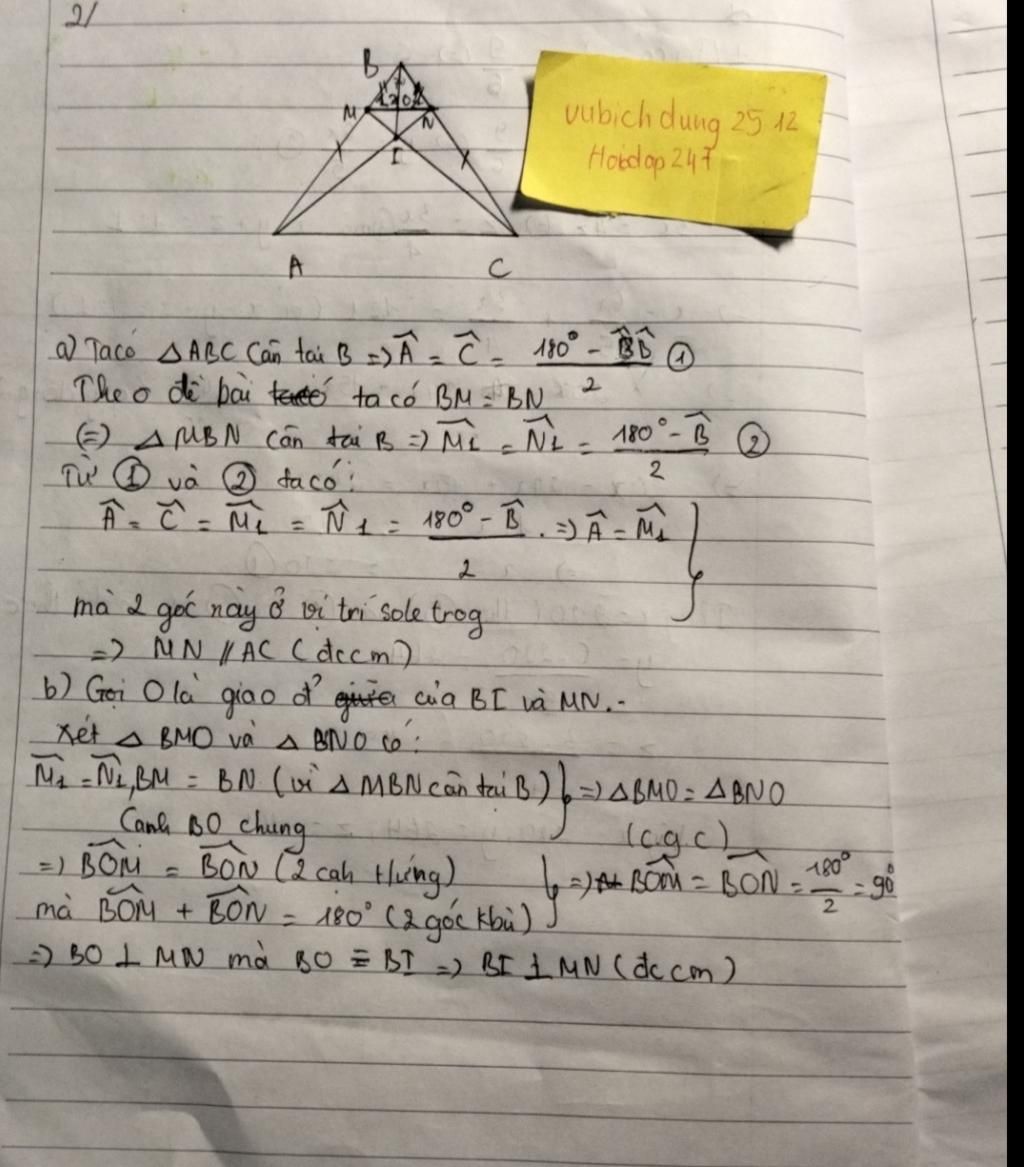 2/
B
1 2 0 2 1
M
N
I
A
C
vubichdung 25 12
Hoidap 247
a) Ta có △ABC Cân tại B => Â = Ĉ = (180° - B̂B̂)/2 ①
Theo đề bài ta có ta có BM = BN
(=) △MBN cân tại B => M̂1 = N̂1 = (180° - B̂)/2 ②
Từ ① và ② ta có:
Â = Ĉ = M̂1 = N̂1 = (180° - B̂)/2 . => Â = M̂1
mà 2 góc này ở vị trí sole trog
=> MN // AC (đccm)
b) Gọi O là giao đ' giữa của BI và MN.-
xét △ BMO và △ BNO có:
M̂1 = N̂1, BM = BN (vì △ MBN cân tại B) } => △BMO = △BNO
Cạnh BO chung (c.g.c)
=> BÔM = BÔN (2 cạh tứng) } => BÔM = BÔN = 180°/2 = 90°
mà BÔM + BÔN = 180° (2 góc kbù)
=> BO ⊥ MN mà BO ≡ BI => BI ⊥ MN (đccm)